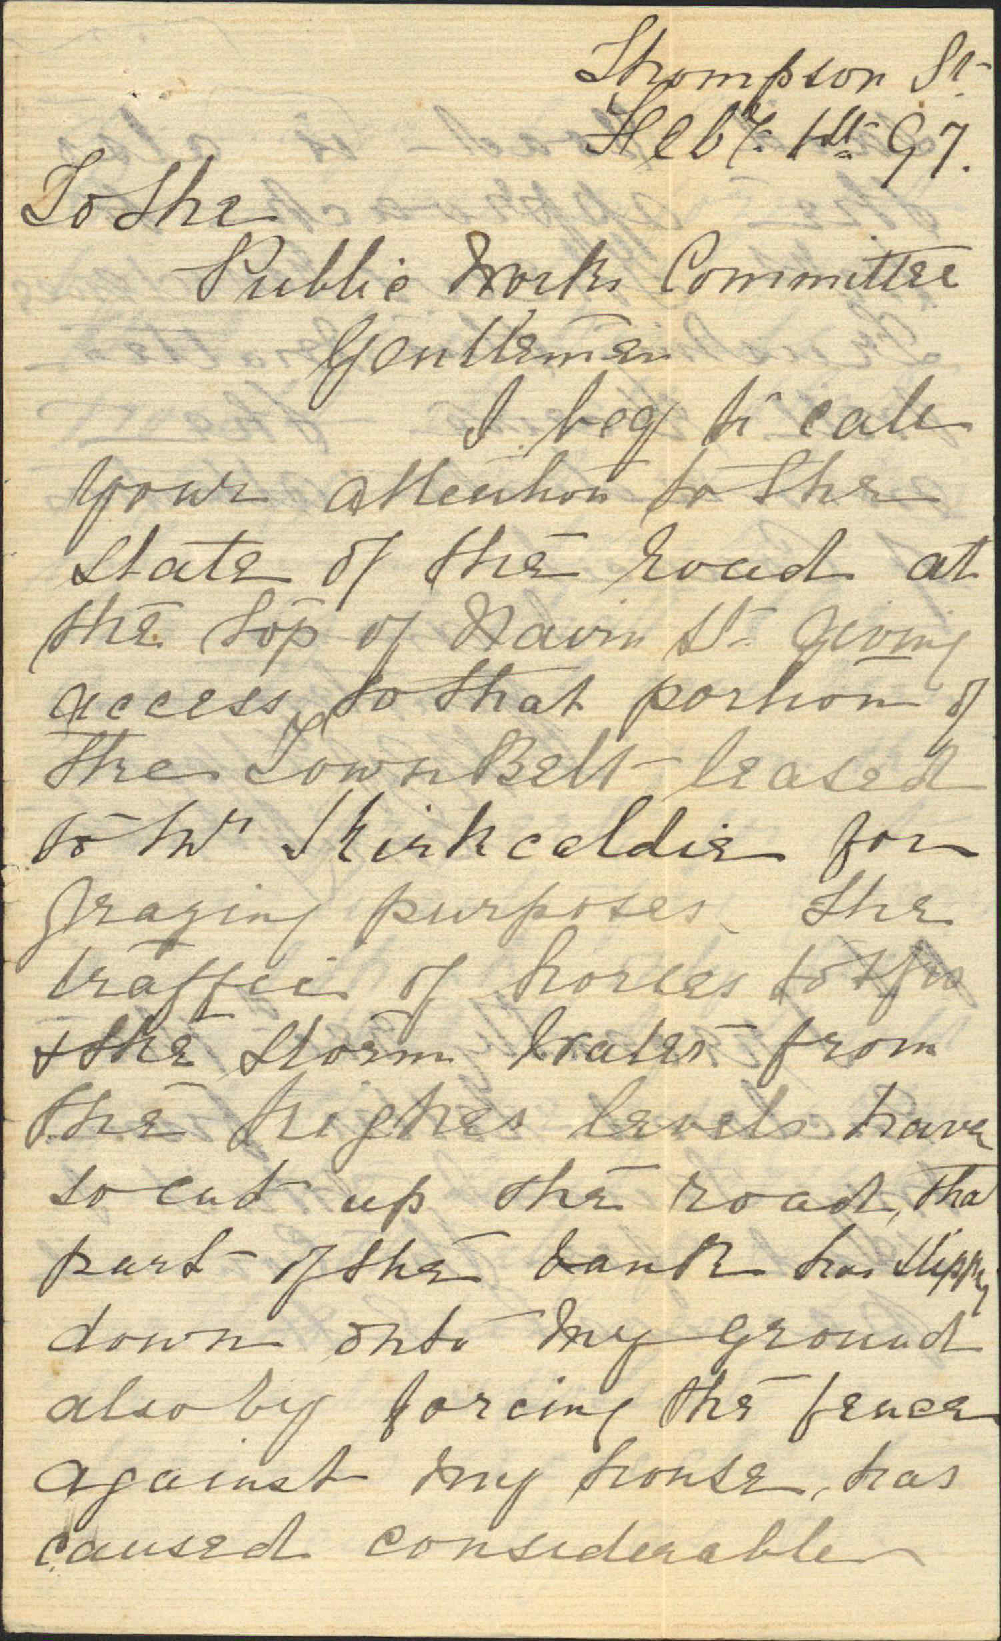 Thompson St
Feby. 1st 97.
To the
Public Works Committee
Gentlemen
I beg to call
your attention to the
state of the road at
the top of Nairn St. giving
access to that portion of
the Town Belt leased
to Mr Kirkcaldie for
grazing purposes. The
traffic of horses to & fro
& the storm water from
the higher levels have
so cut up the road, tha
part of the bank has slippy
down onto my ground
also by forcing the fence
against my house, has
caused considerable